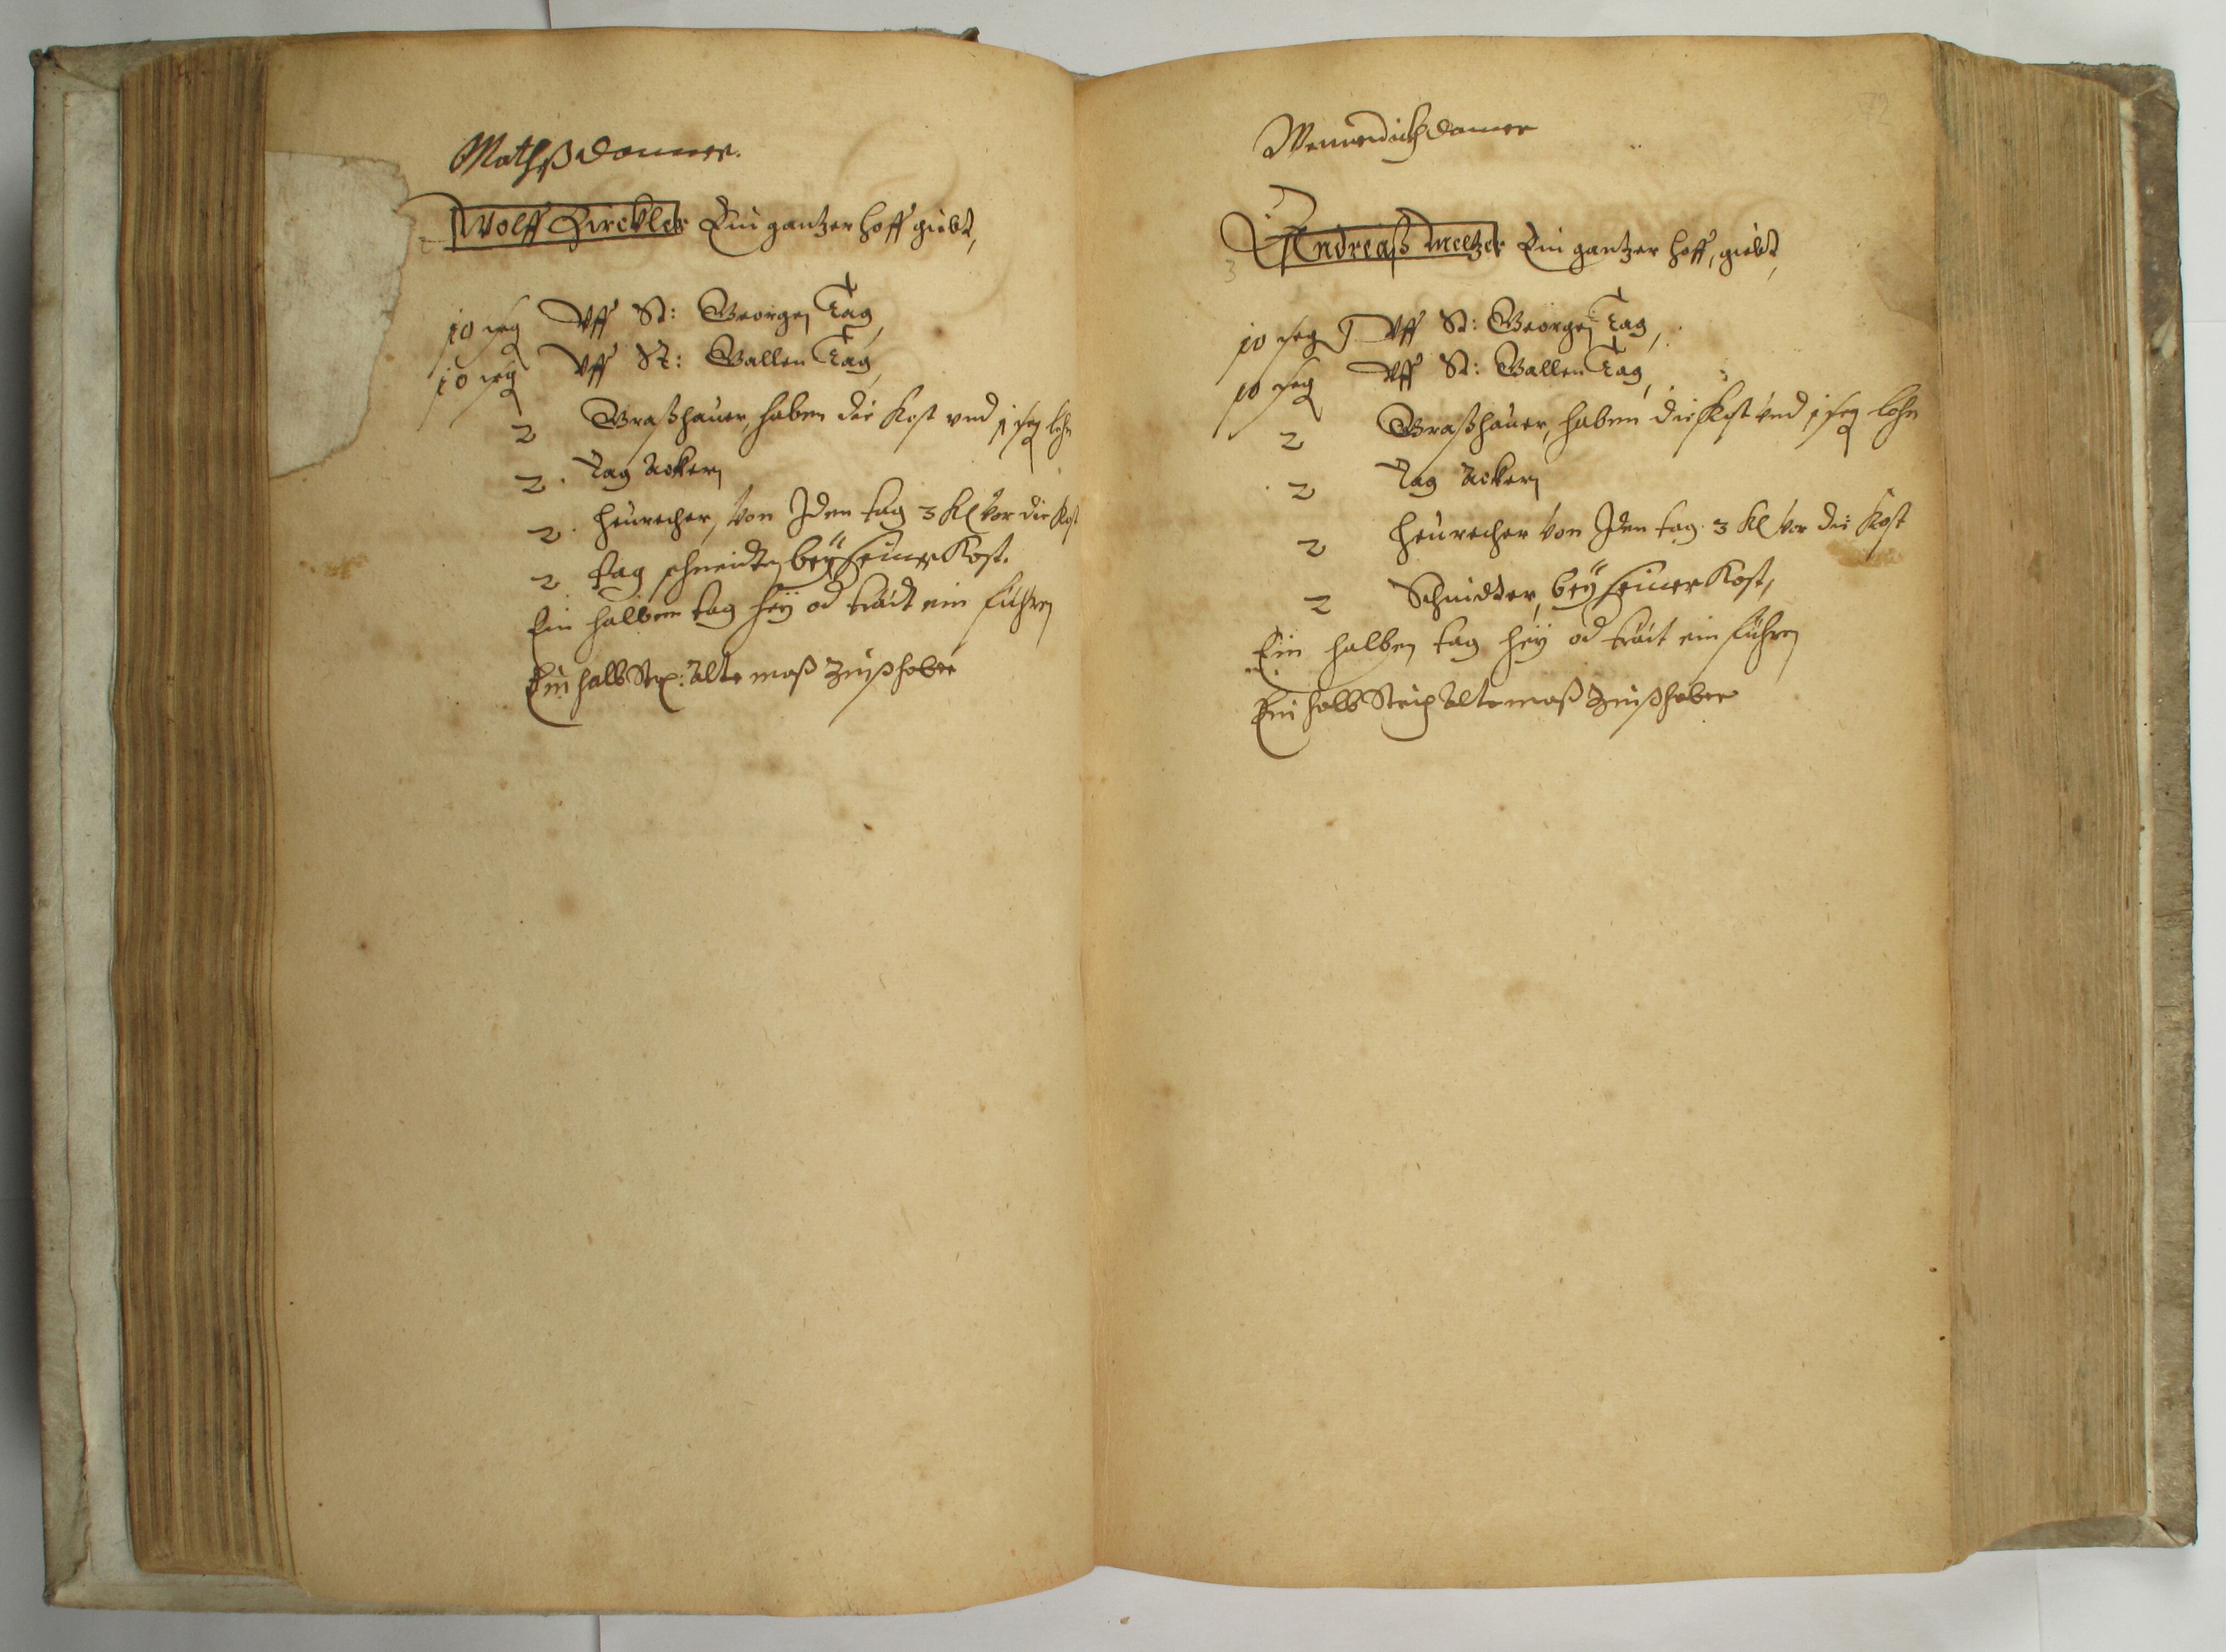 Mathß Donner.
Wolff Zirckler Ein gantzer hoff giebt,
10 ssg Vff St: Georgen Tag,
10 ssg Vff St: Gallen Tag,
2 Graßhauer, haben die Kost vnd 1 ssg lohn
2. Tag Ackern
2. Heurecher, von Jden tag 3 Kl vor die Kost
2 tag schneidten beÿ seiner Kost.
Ein halben tag heÿ od träidt ein führen
Ein halb Strp: alte maß Zinßhaber
79
Donner
3
Andreaß Meltzer Ein gantzer hoff, giebt,
10 ssg Vff St: Georgen Tag,
10 ssg Vff St: Gallen Tag,
2 Graßhauer, haben die Kost vnd 1 ssg lohn
2 Tag Ackern
2 Heurecher von Jden tag. 3 Kl vor die Kost
2 Schnidter, beÿ seiner Kost,
Ein halben tag heÿ od träit ein führen
Ein halb Strip alte maß Zinßhaber